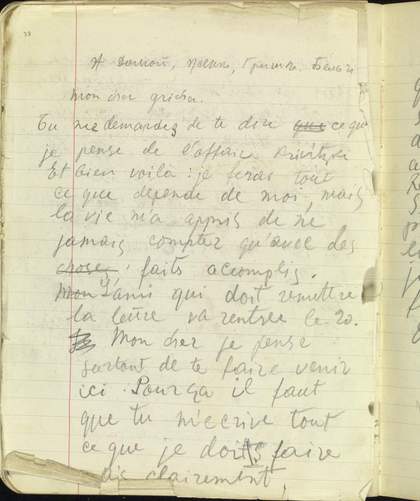 Mon cher grisha.
Tu me demandes de te dire ce que
je pense de l'affaire
Et bien voilà : je ferai tout
ce que depende de moi, mais
la vie m'a appris de ne
jamais compter qu'avec des
choses, faits accomplis.
Mon L'ami qui doit remettre
la lettre va rentrée le 20.
Mon cher je pense
surtout de te faire venir
ici. Pour ça il faut
que tu m'ecrive tout
ce que je doits faire
clairement,